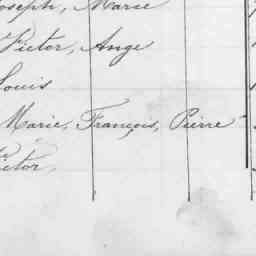 Joseph, Marie
Victor, Ange
Louis
Marie, François, Pierre